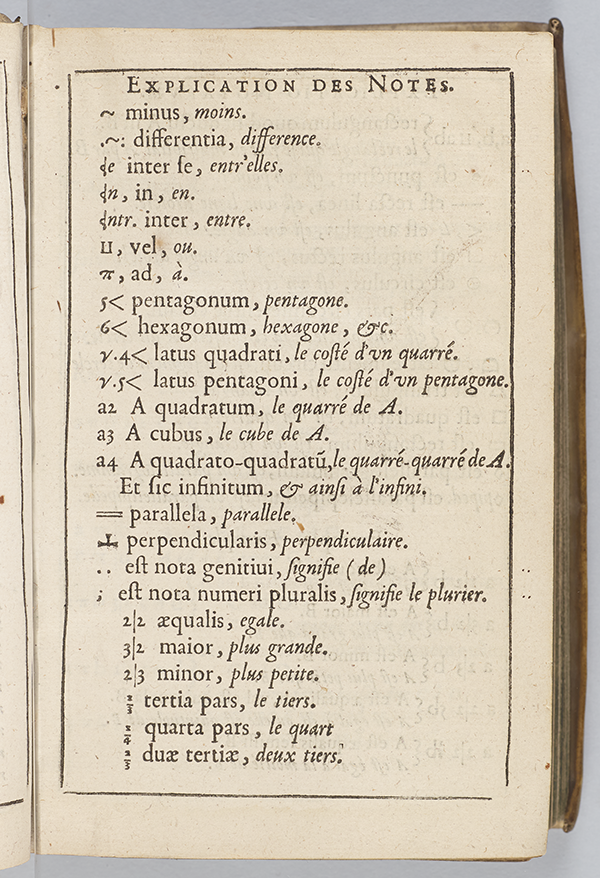 EXPLICATION DES NOTES.
~ minus, moins.
.~: differentia, difference.
ɠe inter ſe, entr'elles.
ɠn, in, en.
ɠntr. inter, entre.
⊔, vel, ou.
π, ad, à.
5< pentagonum, pentagone.
6< hexagonum, hexagone, &c.
ν.4< latus quadrati, le coſté d'vn quarré.
ν.5< latus pentagoni, le coſté d'vn pentagone.
a2 A quadratum, le quarré de A.
a3 A cubus, le cube de A.
a4 A quadrato-quadratũ, le quarré-quarré de A.
Et ſic infinitum, & ainſi à l'infini.
= parallela, parallele.
⊥ perpendicularis, perpendiculaire.
.. eſt nota genitiui, ſignifie (de)
; eſt nota numeri pluralis, ſignifie le plurier.
2|2 æqualis, egale.
3|2 maior, plus grande.
2|3 minor, plus petite.
1/3 tertia pars, le tiers.
1/4 quarta pars, le quart
2/3 duæ tertiæ, deux tiers.